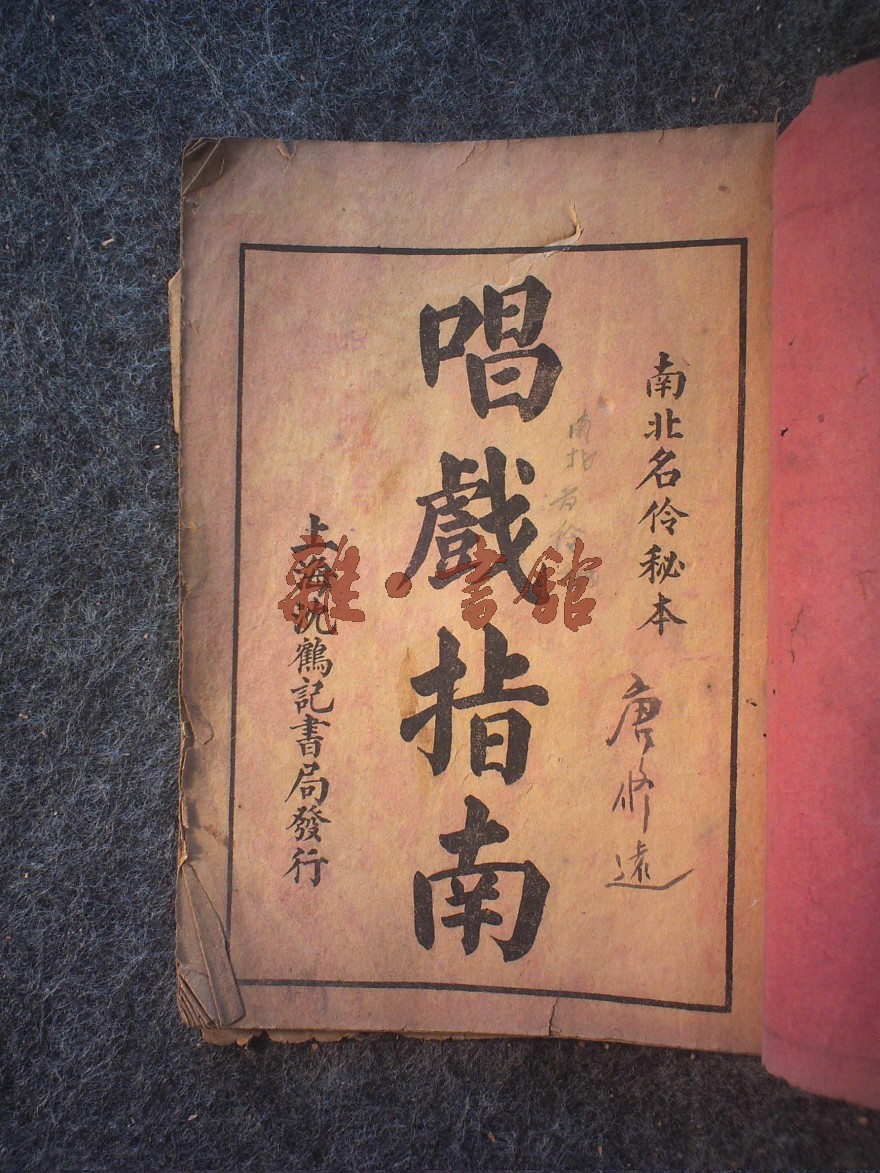 南北名伶秘本
唐修遠
南北名伶
唱戲指南
上海沈鶴記書局發行
雜·書館